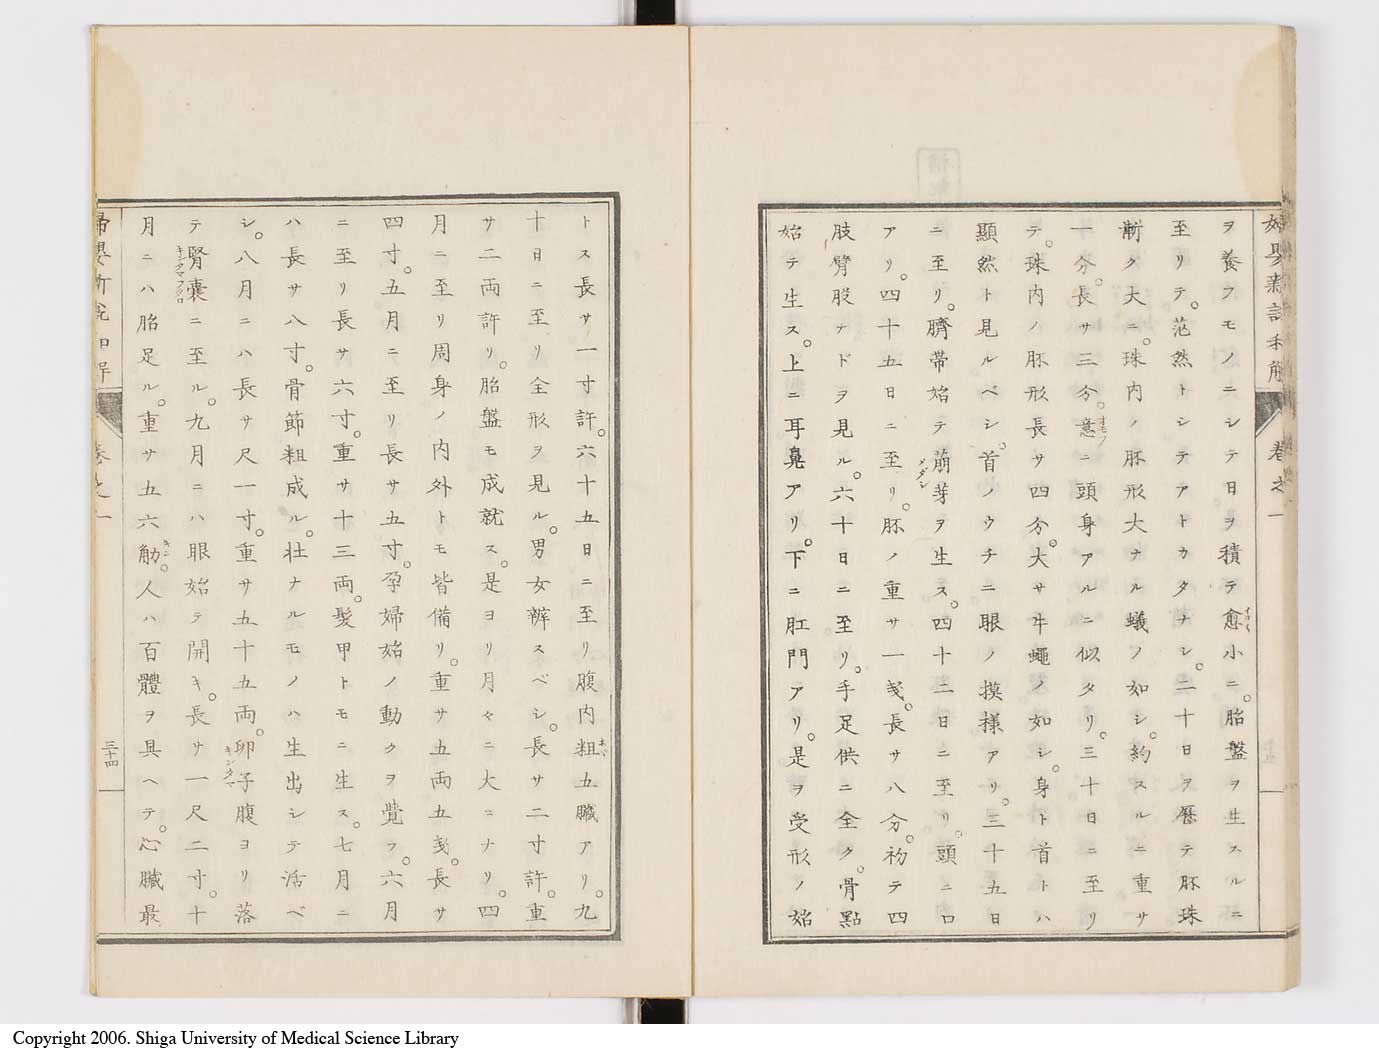 ヲ養フモノニシテ日ヲ積テ愈小ニ。胎盤ヲ生スルニ
至リテ。茫然トシテアトカタナシ。二十日ヲ歴テ胚珠
漸ク大ニ。珠内ノ胚形大ナル蟻ノ如シ。約スルニ重サ
一分。長サ三分。意ニ頭身アルニ似タリ。三十日ニ至リ
テ。珠内ノ胚形長サ四分。大サ牛蠅ノ如シ。身ト首トハ
顯然ト見ルベシ。首ノウチニ眼ノ摸様アリ。三十五日
ニ至リ。臍帯始テ萠芽ヲ生ス。四十二日ニ至リ。頭ニ口
アリ。四十五日ニ至リ。胚ノ重サ一戔。長サハ八分。初テ四
肢臂股ナドヲ見ル。六十日ニ至リ。手足供ニ全ク。骨點
始テ生ス。上ニ耳鼻アリ。下ニ肛門アリ。是ヲ受形ノ始
トス長サ一寸許。六十五日ニ至リ腹内粗五臓アリ。九
十日ニ至リ全形ヲ見ル。男女辨スベシ。長サ二寸許。重
サ二両許リ。胎盤モ成就ス。是ヨリ月々ニ大ニナリ。四
月ニ至リ周身ノ内外トモ皆備リ。重サ五両五戔。長サ
四寸。五月ニ至リ長サ五寸。孕婦始ノ動クヲ覺フ。六月
ニ至リ長サ六寸。重サ十三両。髪甲トモニ生ス。七月ニ
ハ長サ八寸。骨節粗成ル。壮ナルモノハ生出シテ活ベ
シ。八月ニハ長サ尺一寸。重サ五十五両。卵子腹ヨリ落
テ腎嚢ニ至ル。九月ニハ眼始テ開キ。長サ一尺二寸。十
月ニハ胎足ル。重サ五六觔。人ハ百體ヲ具ヘテ。心臓最
三十四
Copyright 2006. Shiga University of Medical Science Library